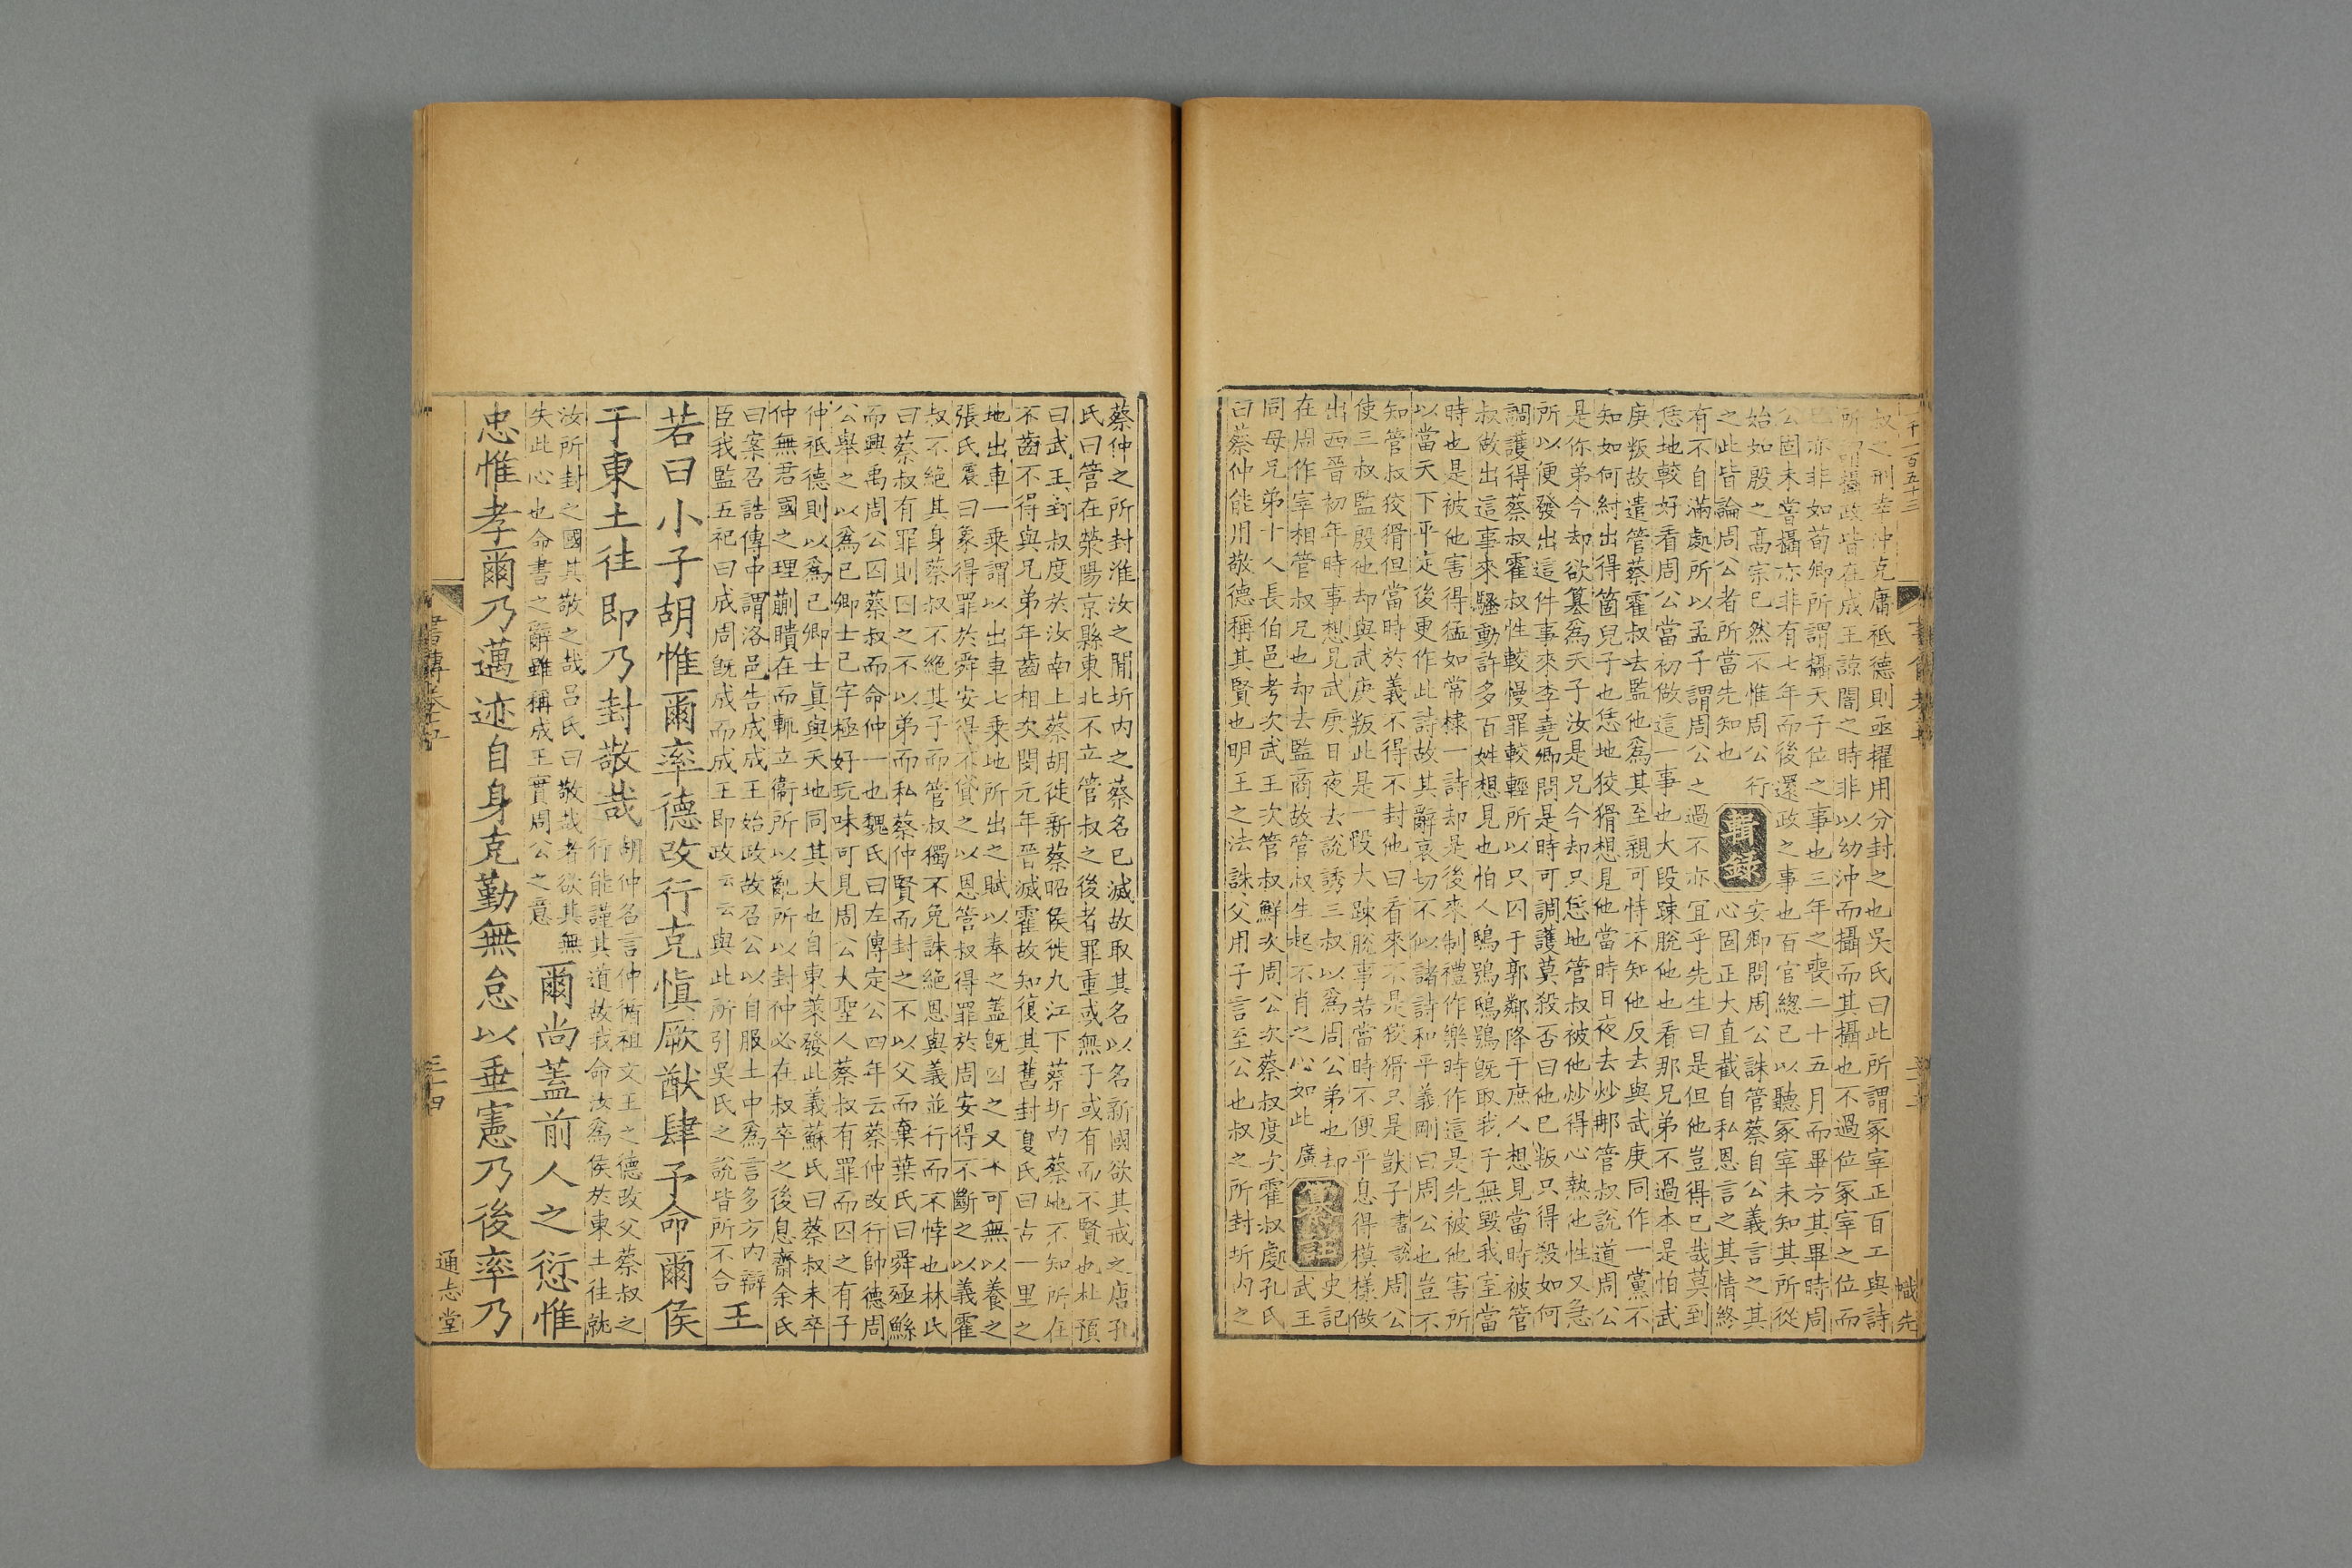 叔之刑幸仲克庸祗德則亟擢用分封之也吳氏曰此所謂冢宰正百工與詩
所謂攝政皆在成王諒闇之時非以幼沖而攝而其攝也不過位冢宰之位而
已亦非如荀卿所謂攝天子位之事也三年之喪二十五月而畢方其畢時周
公固未嘗攝亦非有七年而後還政之事也百官總已以聽冢宰未知其所從
始如殷之高宗已然不惟周公行
之此皆論周公者所當先知也
輯錄
安卿問周公誅管蔡自公義言之其
心固正大直截自私恩言之其情終
有不自滿處所以孟子謂周公之過不亦宜乎先生曰是但他豈得已哉莫到
恁地較好看周公當初做這一事也大段踈脫他也看那兄弟不過本是怕武
庚叛故遣管蔡霍叔去監他爲其至親可恃不知他反去與武庚同作一黨不
知如何紂出得箇兒子也恁地狡猾想見他當時日夜去炒那管叔說道周公
是你弟今却欲簒爲天子汝是兄今却只恁地管叔被他炒得心熱他性又急
所以便發出這件事來李堯卿問是時可調護莫殺否曰他已叛只得殺如何
調護得蔡叔霍叔性較慢罪較輕所以只囚于郭鄰降于庶人想見當時被管
叔做出這事來騷動許多百姓想見也怕人鴟鴞鴟鴞旣取我子無毀我室當
時也是被他害得猛如常棣一詩却是後來制禮作樂時作這是先被他害所
以當天下平定後更作此詩故其辭哀切不似諸詩和平義剛曰周公也豈不
知管叔狡猾但當時於義不得不封他曰看來不是狡猾只是獃子書說周公
使三叔監殷他却與武庚叛此是一段大踈脫事若當時不便平息得模樣做
出西晉初年時事想見武庚日夜去說誘三叔以爲周公弟也却
在周作宰相管叔兄也却去監商故管叔生起不肖之心如此廣
纂註
史記
武王
同母兄弟十人長伯邑考次武王次管叔鮮次周公次蔡叔度次霍叔處孔氏
曰蔡仲能用敬德稱其賢也明王之法誅父用子言至公也叔之所封圻內之
蔡仲之所封淮汝之閒圻內之蔡名已滅故取其名以名新國欲其戒之唐孔
氏曰管在滎陽京縣東北不立管叔之後者罪重或無子或有而不賢也杜預
曰武王封叔度於汝南上蔡胡徙新蔡昭侯徙九江下蔡圻內蔡地不知所在
不齒不得與兄弟年齒相次閔元年晉滅霍故知復其舊封夏氏曰古一里之
地出車一乘謂以出車七乘地所出之賦以奉之蓋旣囚之又不可無以養之
張氏震曰象得罪於舜安得不貸之以恩管叔得罪於周安得不斷之以義霍
叔不絕其身蔡叔不絕其子而管叔獨不免誅絕恩與義並行而不悖也林氏
曰蔡叔有罪則囚之不以弟而私蔡仲賢而封之不以父而棄葉氏曰舜殛鯀
而興禹周公囚蔡叔而命仲一也魏氏曰左傳定公四年云蔡仲改行帥德周
公舉之以爲已卿士已字極好玩味可見周公大聖人蔡叔有罪而囚之有子
仲祗德則以爲已卿士眞與天地同其大也自東萊發此義蘇氏曰蔡叔未卒
仲無君國之理蒯聵在而輒立衞所以亂所以封仲必在叔卒之後息齋余氏
曰案召誥傳中謂洛邑告成成王始政故召公以自服土中爲言多方內辯
臣我監五祀曰成周旣成而成王即政云云與此所引吳氏之說皆所不合
王
若曰小子胡惟爾率德改行克愼厥猷肆予命爾侯
于東土往即乃封敬哉
胡仲名言仲循祖文王之德改父蔡叔之
行能謹其道故我命汝爲侯於東土往就
汝所封之國其敬之哉呂氏曰敬哉者欲其無
失此心也命書之辭雖稱成王實周公之意
爾尚蓋前人之愆惟
忠惟孝爾乃邁迹自身克勤無怠以垂憲乃後率乃
通志堂